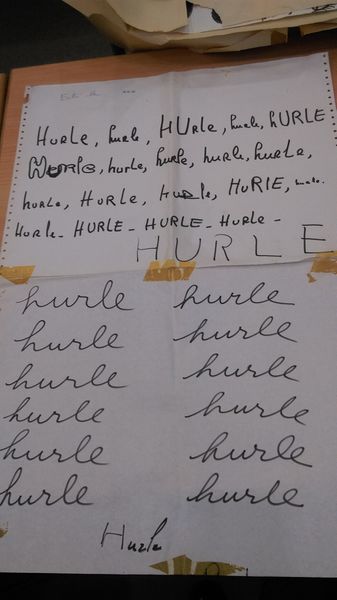 HuRle, hurle, HURLe, hurle, hURLE
HuRle, hurle, hurle, hurle, hurLe,
hurle, HURLe, HuRle, HuRlE, hurle.
Hurle - HURLE - HURLE - HuRle -
HURLE
hurle hurle
hurle hurle
hurle hurle
hurle hurle
hurle hurle
hurle hurle
Hurle